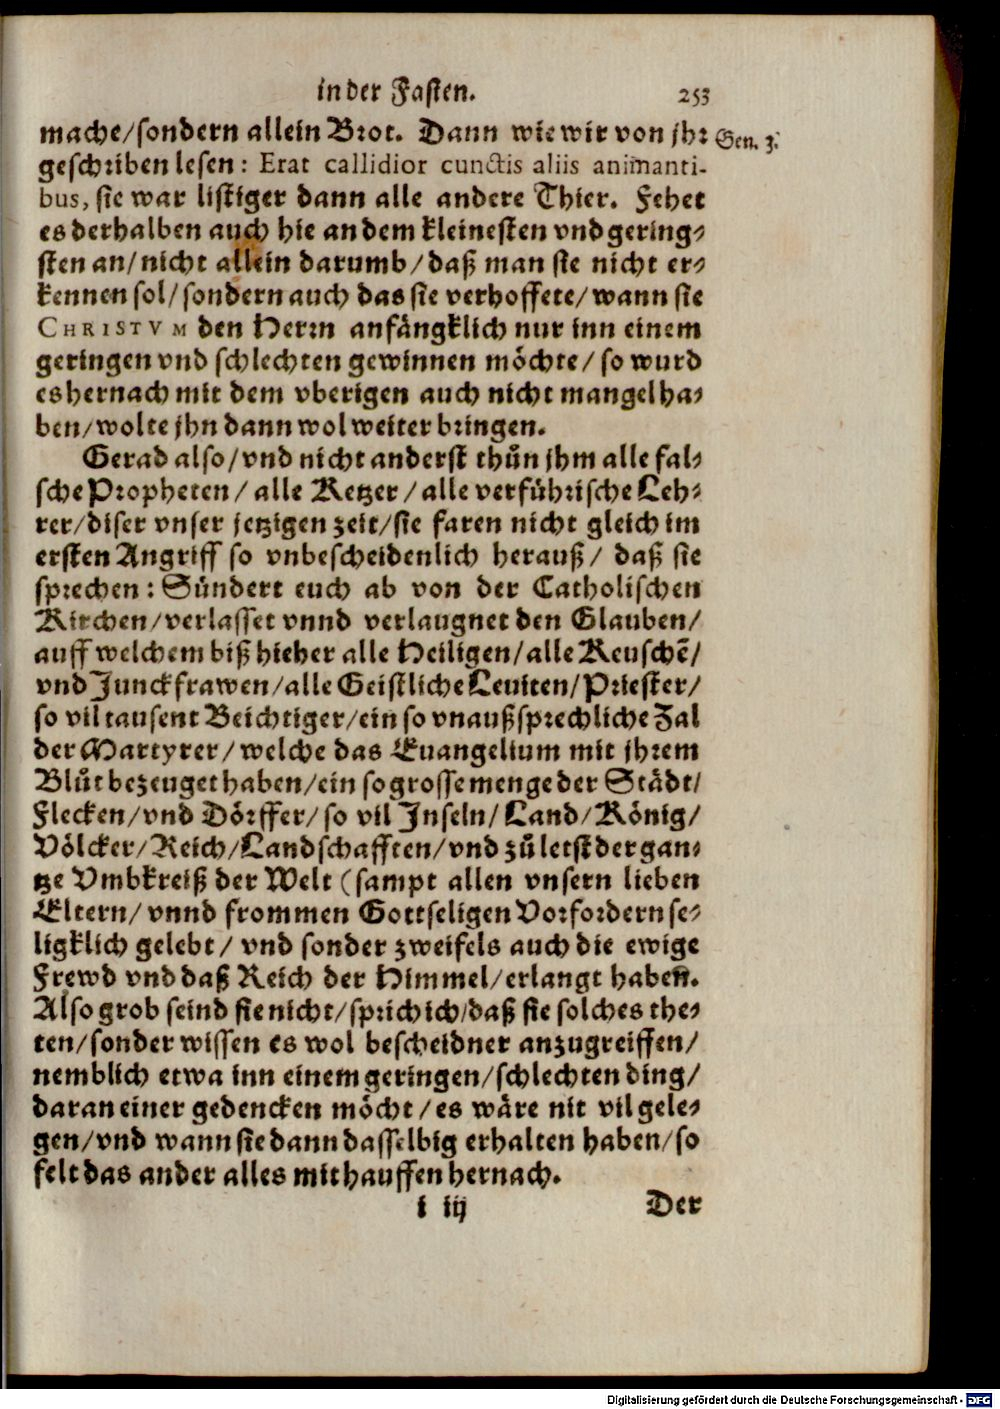 in der Fasten. 253
mache/sondern allein Brot. Dann wie wir von jhr Gen. 3.
geschriben lesen: Erat callidior cunctis aliis animanti-
bus, sie war listiger dann alle andere Thier. Fehet
es derhalben auch hie an dem kleinesten vnd gering-
sten an/nicht allein darumb/daß man sie nicht er-
kennen sol/sondern auch das sie verhoffete/wann sie
CHRISTVM den Herrn anfängklich nur inn einem
geringen vnd schlechten gewinnen möchte/so wurd
es hernach mit dem vberigen auch nicht mangel ha-
ben/wolte jhn dann wol weiter bringen.
Gerad also/vnd nicht anderst thůn jhm alle fal-
sche Propheten/alle Ketzer/alle verführische Leh-
rer/diser vnser jetzigen zeit/sie faren nicht gleich im
ersten Angriff so vnbescheidenlich herauß/daß sie
sprechen: Sündert euch ab von der Catholischen
Kirchen/verlasset vnnd verlaugnet den Glauben/
auff welchem biß hieher alle Heiligen/alle Keuschē/
vnd Junckfrawen/alle Geistliche Leuiten/Priester/
so vil tausent Beichtiger/ein so vnaußsprechliche Zal
der Martyrer/welche das Euangelium mit jhrem
Blůt bezeuget haben/ein so grosse menge der Städt/
Flecken/vnd Dörffer/so vil Inseln/Land/König/
Völcker/Reich/Landschafften/vnd zů letst der gan-
tze Vmbkreiß der Welt (sampt allen vnsern lieben
Eltern/vnnd frommen Gottseligen Vorfordern se-
ligklich gelebt/vnd sonder zweifels auch die ewige
Frewd vnd daß Reich der Himmel/erlangt haben.
Also grob seind sie nicht/sprich ich/daß sie solches the-
ten/sonder wissen es wol bescheidner anzugreiffen/
nemblich etwa inn einem geringen/schlechten ding/
daran einer gedencken möcht/es wäre nit vil gele-
gen/vnd wann sie dann dasselbig erhalten haben/so
felt das ander alles mit hauffen hernach.
i iij Der
Digitalisierung gefördert durch die Deutsche Forschungsgemeinschaft - DFG